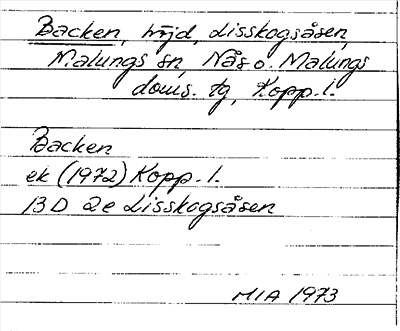 Backen, höjd, Lisskogsåsen,
Malungs sn, Nås o. Malungs
doms. tg, Kopp. l.
Backen
ek (1972) Kopp. l.
13 D 2e Lisskogsåsen
MIA 1973